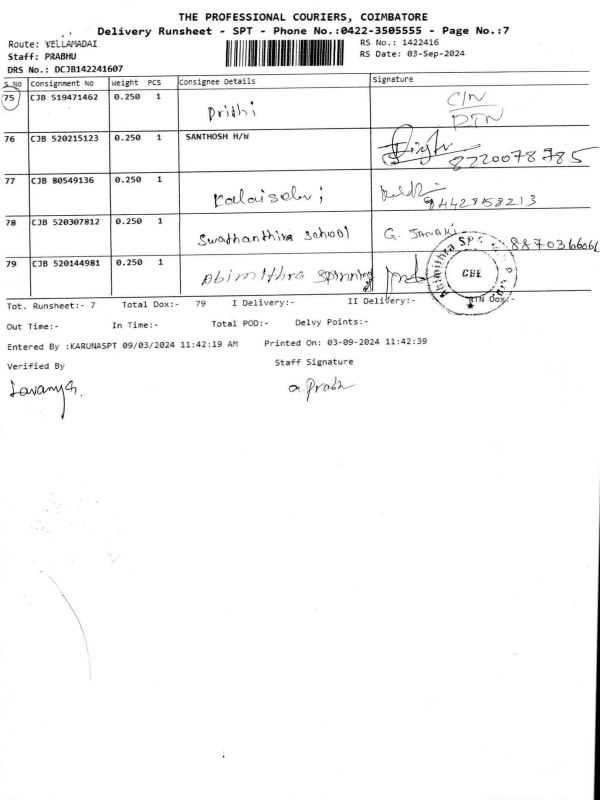 THE PROFESSIONAL COURIERS, COIMBATORE
Delivery Runsheet - SPT - Phone No.:0422-3505555 - Page No.:7
Route: VELLAMADAI RS No.: 1422416
Staff: PRABHU RS Date: 03-Sep-2024
DRS No.: DCJB142241607
S No Consignment No Weight PCS Consignee Details Signature
75 CJB 519471462 0.250 1 Prithi C/N
RTN
76 CJB 520215123 0.250 1 SANTHOSH H/W
8220078785
77 CJB 80549136 0.250 1 Kalaiselvi
9442858213
78 CJB 520307812 0.250 1 Swathanthira School G. JANAKI
79 CJB 520144981 0.250 1 Abimithra Spinning
Abimithra SPG
CBE
Tot. Runsheet:- 7 Total Dox:- 79 I Delivery:- II Delivery:- RTN Dox:-
Out Time:- In Time:- Total POD:- Delvy Points:-
Entered By :KARUNASPT 09/03/2024 11:42:19 AM Printed On: 03-09-2024 11:42:39
Verified By Staff Signature
Lavanya.